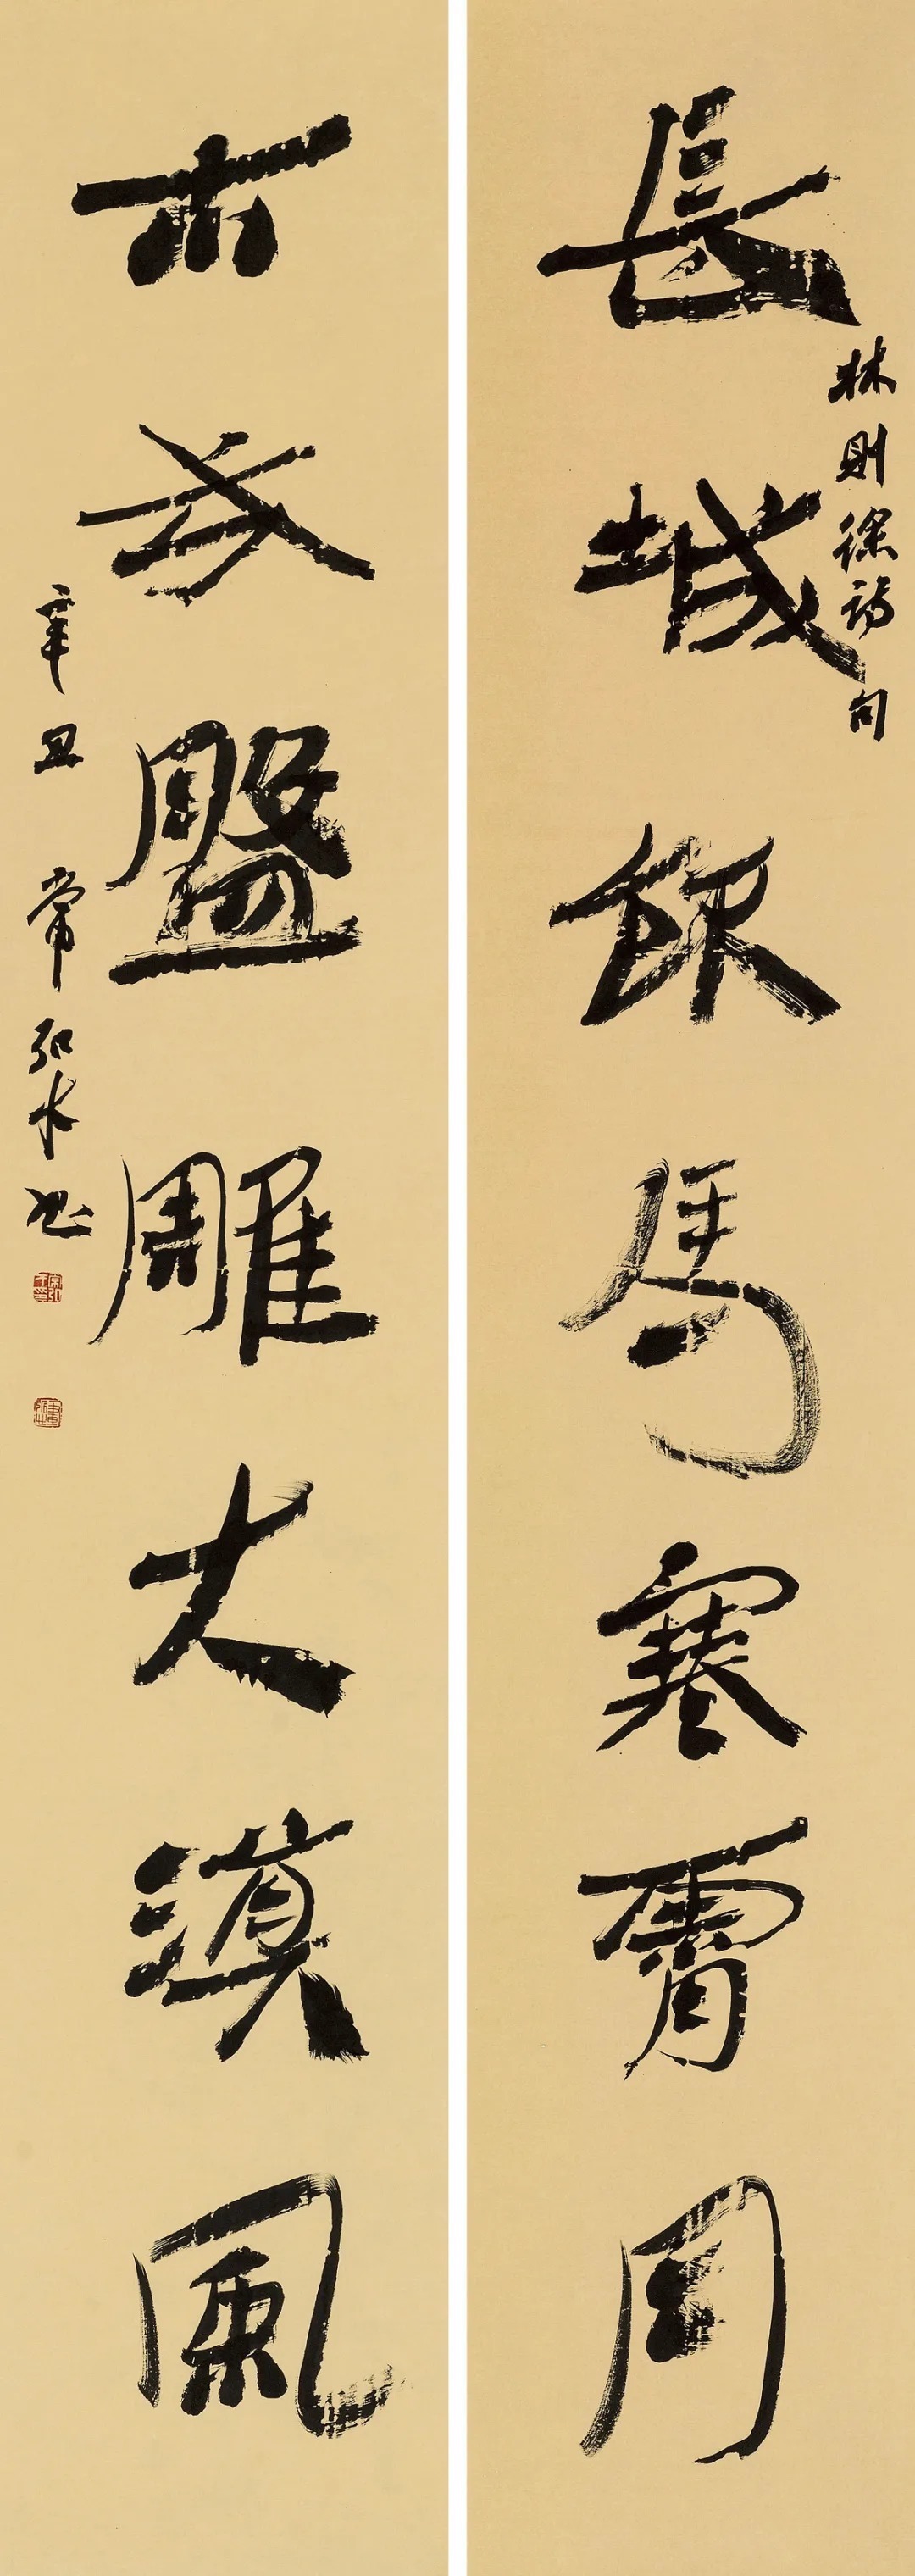 長城飲馬寒宵月
林則徐詩句
古戍盤雕大漠風
辛丑 常弘水书